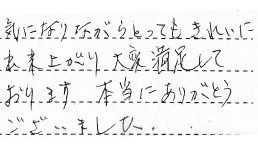 気になりながらとってもきれいに
出来上がり 大変満足して
おります 本当にありがとう
ございました.